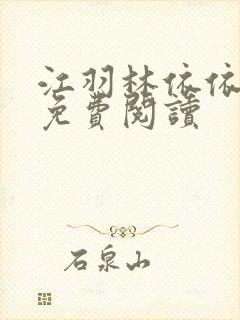 江羽林依依
免費閱讀
石泉山